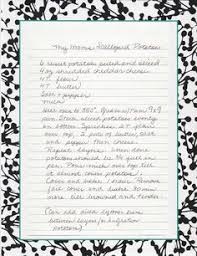 My Moms Scalloped Potatoes
6 russet potatoes peeled and sliced
4 oz shredded cheddar cheese
4T flour
4T butter
Salt + pepper
milk
oven to 350°. Grease/Pam 9x9
pan. Stack sliced potatoes evenly
on bottom. Sprinkle 2T flour
over top, 2 pats of butter, salt
and pepper. Then cheese.
Repeat layers. When done
potatoes should be ¾ full in
pan. Pour milk over top til
it almost covers potatoes.
Cover and bake 1 hour. Remove
foil cover and bake 30 min
more til browned and tender.
(Can add diced between layers